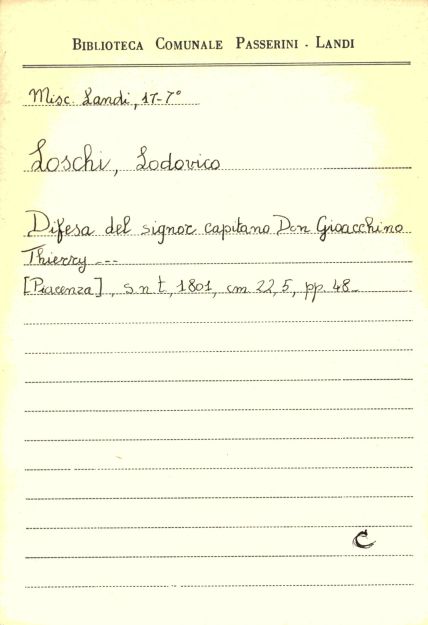 BIBLIOTECA COMUNALE PASSERINI - LANDI
Misc. Landi, 17-7°
Loschi, Lodovico
Difesa del signor capitano Don Gioacchino
Thierry ---
[Piacenza], s n t, 1801, cm 22,5, pp. 48-
C